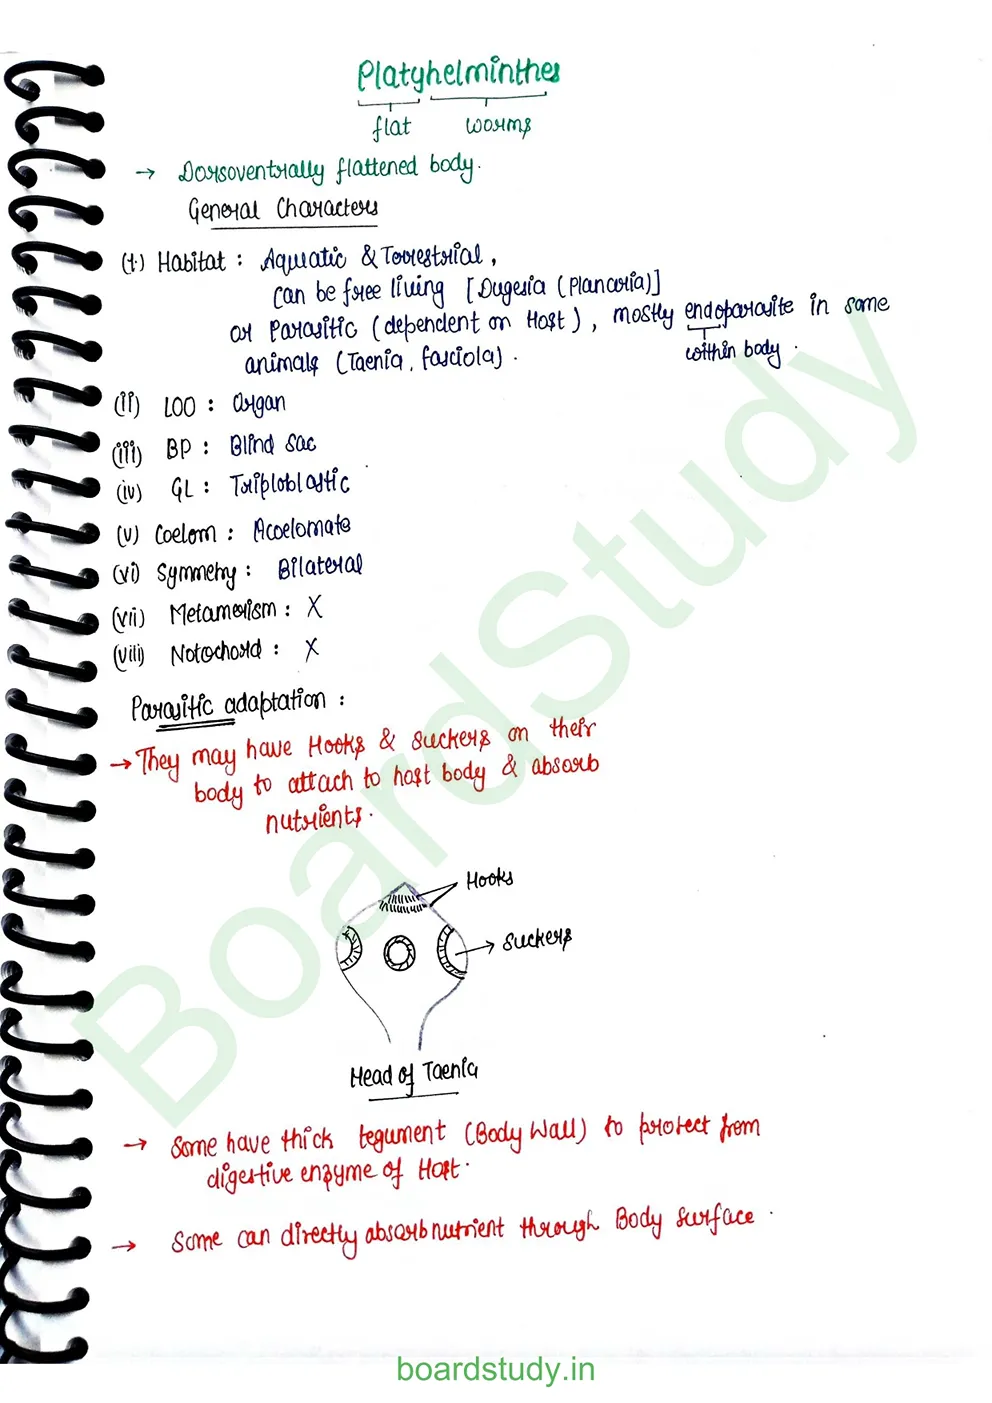 Platyhelminthes
flat worms
→ Dorsoventrally flattened body.
General Characters
(i) Habitat : Aquatic & Terrestrial,
can be free living [Dugesia (Planaria)]
or Parasitic (dependent on Host), mostly endoparasite in some
within body.
animals (Taenia, fasciola).
(ii) LOO : Organ
(iii) BP : Blind sac
(iv) GL : Triploblastic
(v) Coelom : Acoelomate
(vi) Symmetry : Bilateral
(vii) Metamerism : X
(viii) Notochord : X
Parasitic adaptation :
→ They may have Hooks & suckers on their
body to attach to host body & absorb
nutrients.
Hooks
Suckers
Head of Taenia
→ Some have thick tegument (Body Wall) to protect from
digestive enzyme of Host.
→ Some can directly absorb nutrient through Body surface.
BoardStudy
boardstudy.in